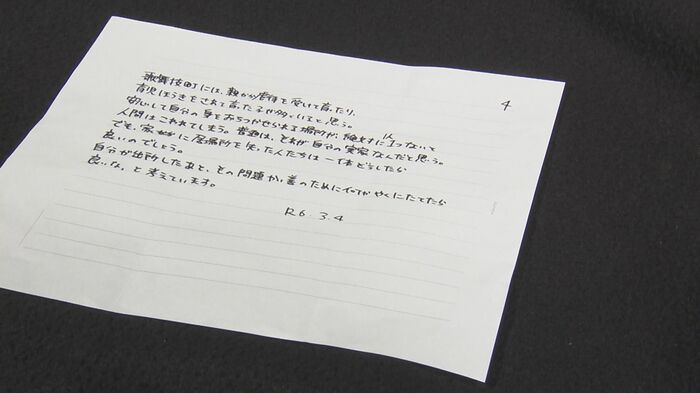 4
歌舞伎町には、親から虐待を受けて育ったり、
育児ほうきをされて育った子が多いと思う。
安心して自分の身をおちつかせられる場所が、絶対に1つないと
人間はこわれてしまう。普通は、それが自分の実家なんだと思う。
でも、家や家族に居場所を失った人たちは一体どうしたら
良いのでしょう。
自分が出所したあと、その問題改善のために何かやくにたてたら
良いな。と考えています。
R6. 3. 4